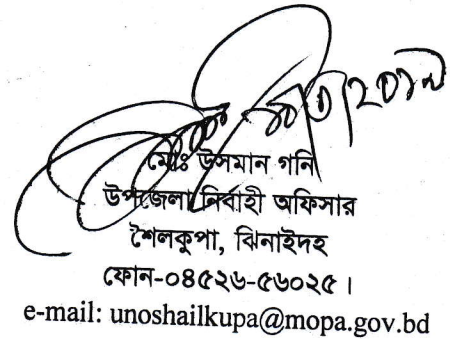 মোঃ উসমান গনি
উপজেলা নির্বাহী অফিসার
শৈলকুপা, ঝিনাইদহ
ফোন-০৪৫২৬-৫৬০২৫।
e-mail: unoshailkupa@mopa.gov.bd